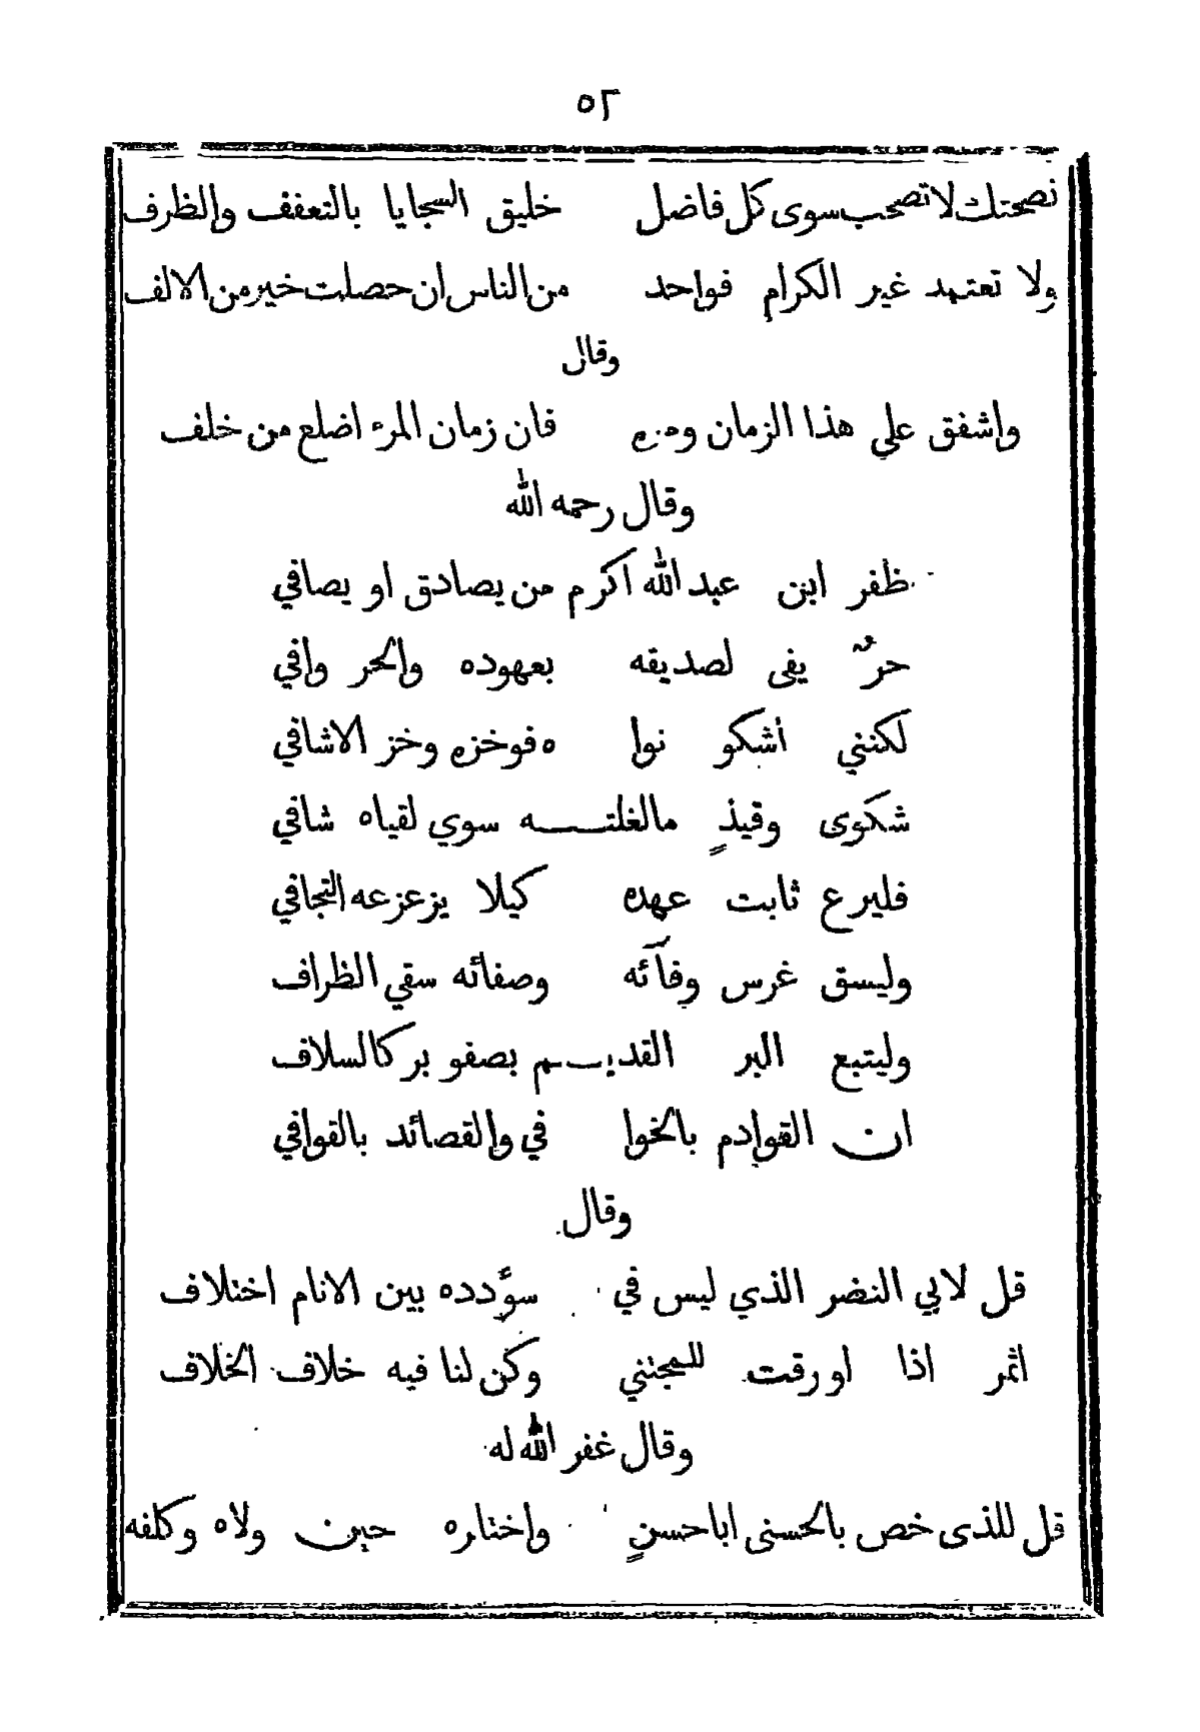 ٥٢
نصحتك لا تصحب سوى كل فاضل خليق السجايا بالتعفف والظرف
ولا تعتمد غير الكرام فواحد من الناس ان حصلت خير من الالف
وقال
واشفق علي هذا الزمان ومره فان زمان المرء اضلع من خلف
وقال رحمه الله
ظفر ابن عبد الله اكرم من يصادق او يصافي
حرٌ يفى لصديقه بعهوده والحر وافي
لكنني أشكو نوا ه فوخزه وخز الاشافي
شكوى وقيذٍ مالغلته سوي لقياه شافي
فليرع ثابت عهده كيلا يزعزعه التجافي
وليسق غرس وفآئه وصفائه سقي الظراف
وليتبع البر القديم بصفو بر كالسلاف
ان القوادم بالخوا في والقصائد بالقوافي
وقال
قل لابي النضر الذي ليس في سؤدده بين الانام اختلاف
اثمر اذا اورقت للمجتني وكن لنا فيه خلاف الخلاف
وقال غفر الله له
قل للذى خص بالحسنى اباحسنٍ واختاره حين ولاه وكلفه